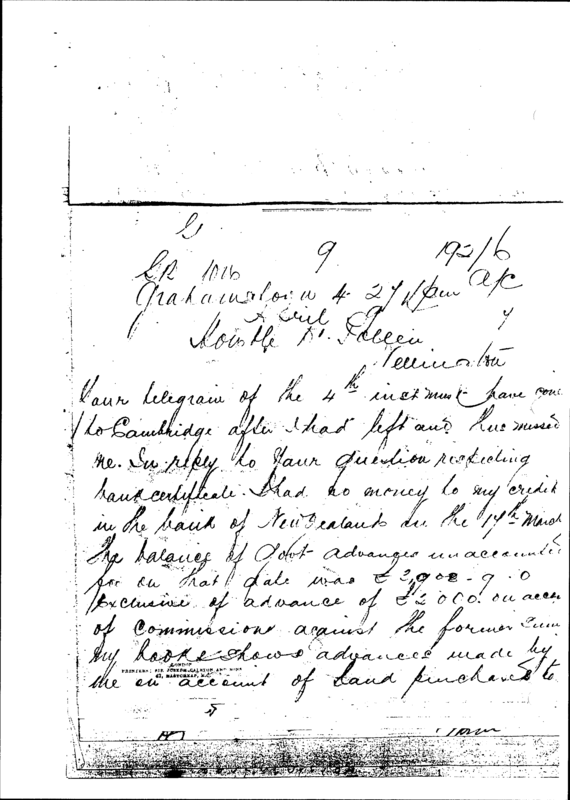 G
9 192/6
GR 1016 a/c
Grahamstown 4 27 pm
April 9
Honble Dr. Pollen
Wellington
Your telegram of the 4th inst must have
to Cambridge after I had left and thus missed
me. In reply to Your question respecting
bank certificate. I had no money to my credit
in the bank of New Zealand on the 17th March
The balance of Govt advances unaccounted
for on that date was £2,908-9-0
Exclusive of advance of £2000. on
of Commission against the former sum
my books shows advances made by
LONDON
me on account of Land purchases to